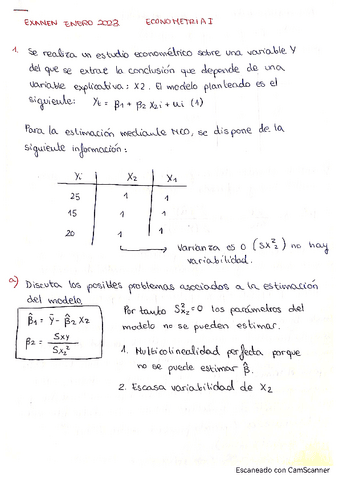 EXAMEN ENERO 2023 ECONOMETRIA I
1. Se realiza un estudio econométrico sobre una variable Y
del que se extrae la conclusión que depende de una
variable explicativa: X2. El modelo planteado es el
siguiente: Yt = β1 + β2 X2i + ui (1)
Para la estimación mediante MCO, se dispone de la
siguiente información:
Yi X2 X1
25 1 1
15 1 1
20 1 1
Varianza es 0 (Sx₂²) no hay
variabilidad.
a) Discuta los posibles problemas asociados a la estimación
del modelo
β̂1 = ȳ - β̂2 X2
β2 = Sxy / Sx₂²
Por tanto S²x₂=0 los parámetros del
modelo no se pueden estimar.
1. Multicolinealidad perfecta porque
no se puede estimar β̂.
2. Escasa variabilidad de X2
Escaneado con CamScanner